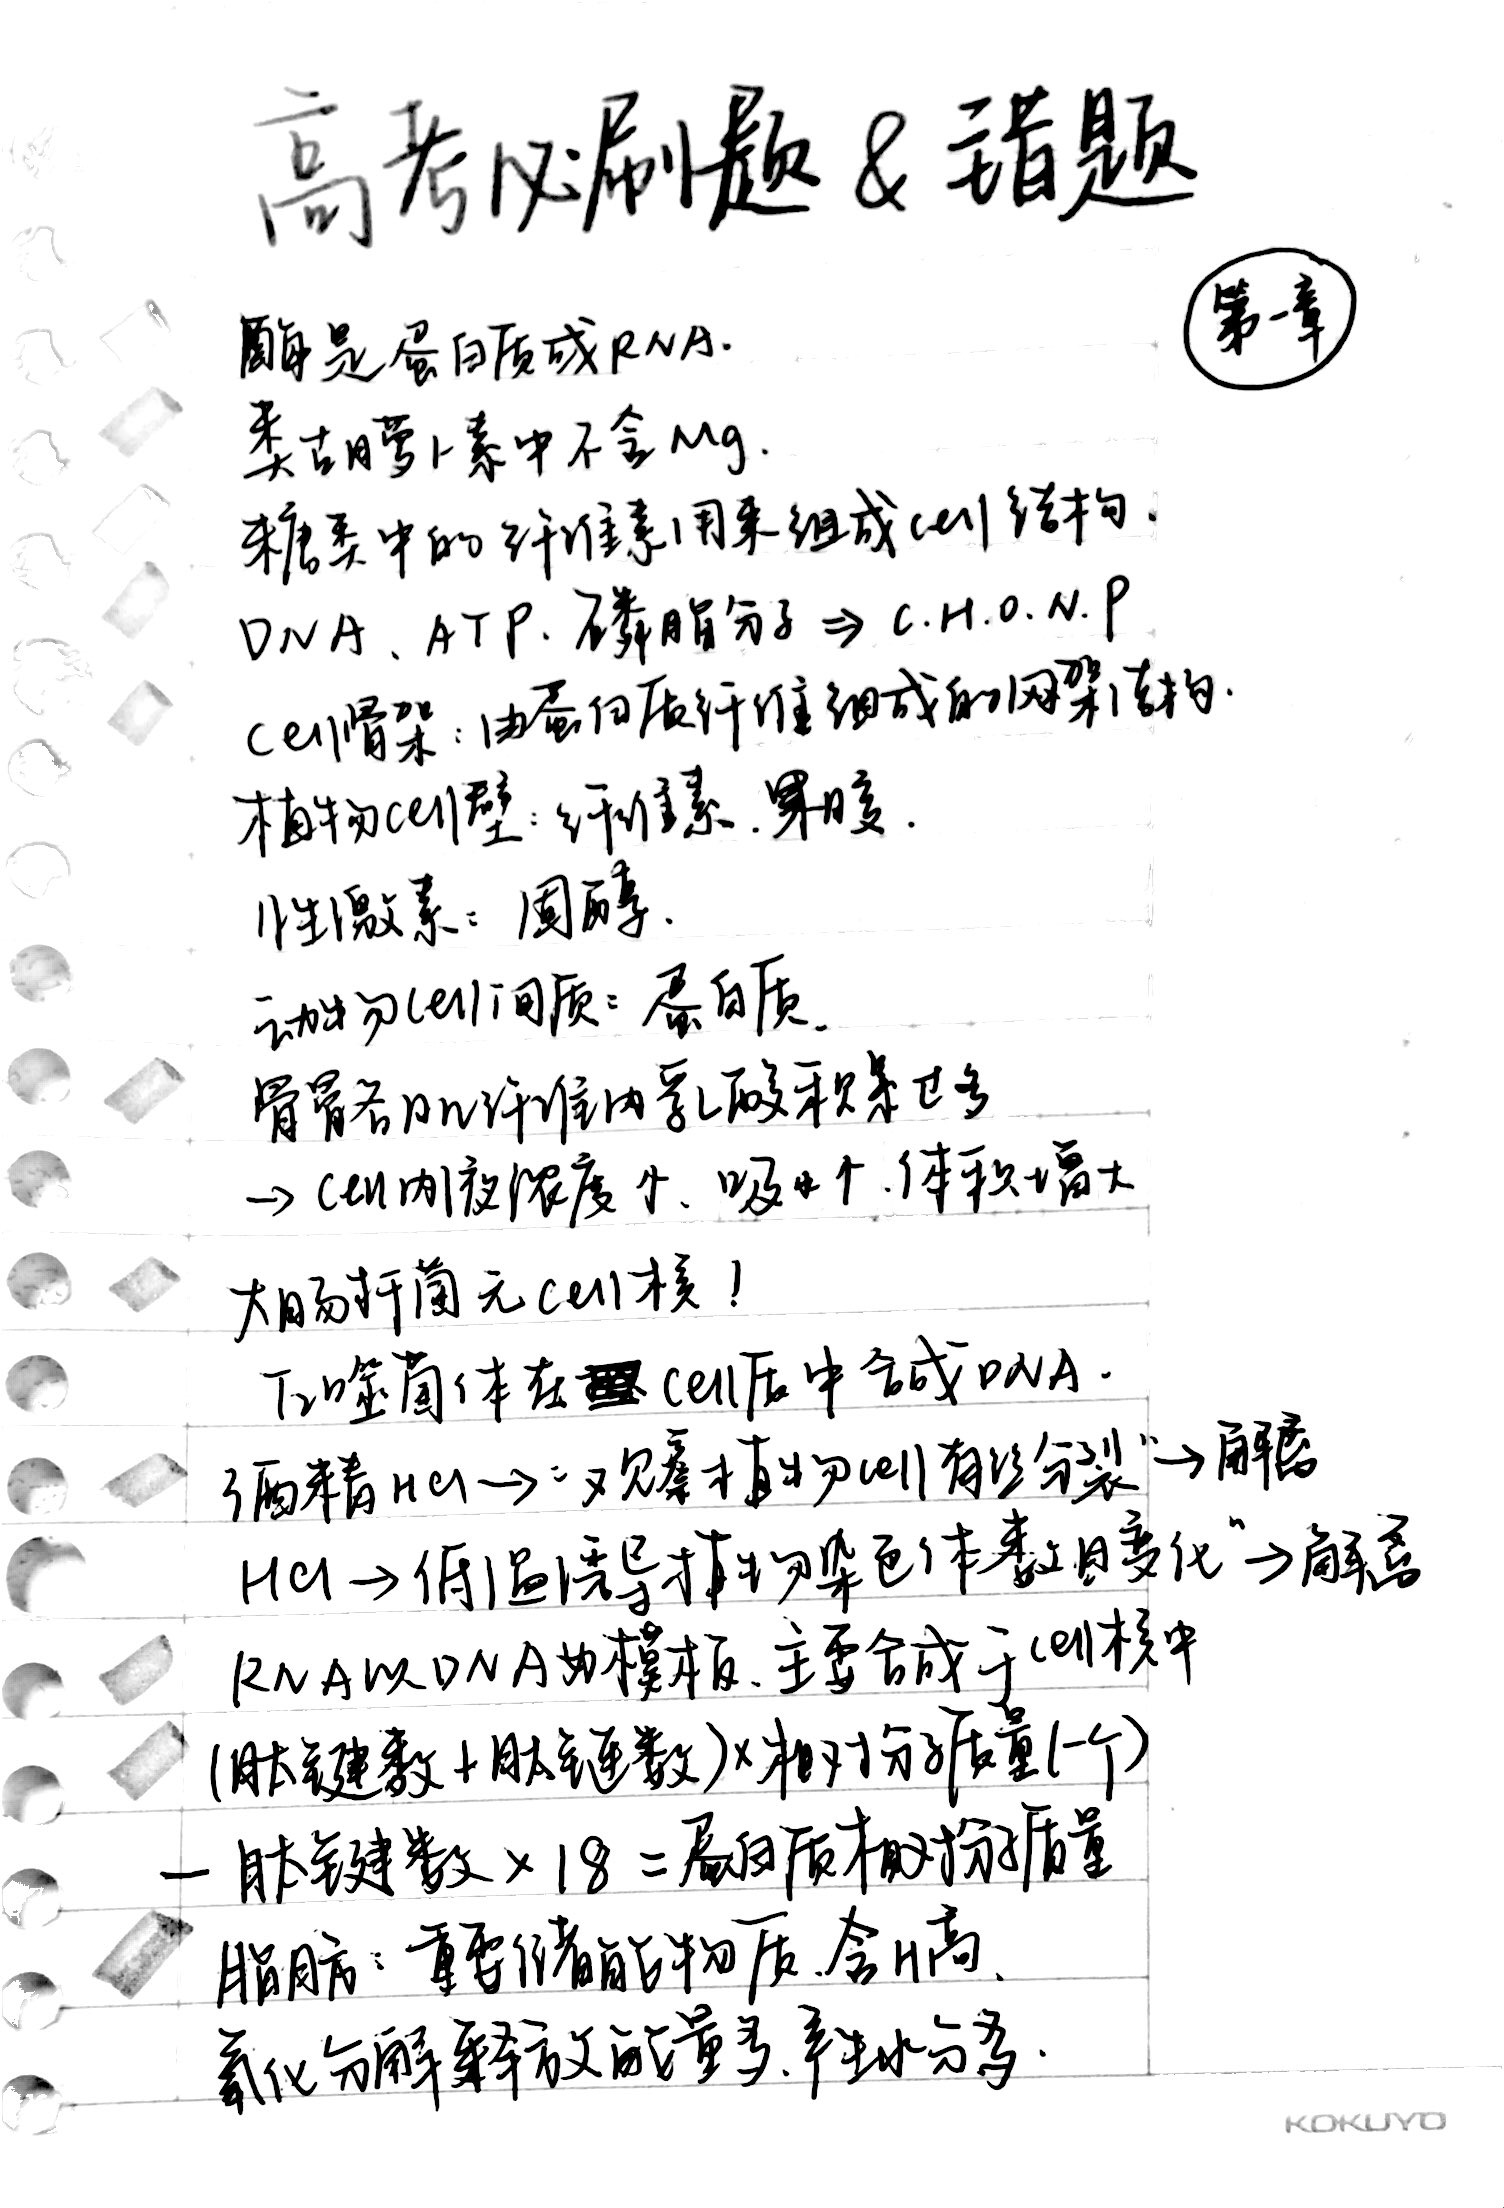 高考必刷题 & 错题
第一章
酶是蛋白质或RNA.
类胡萝卜素中不含Mg.
糖类中的纤维素用来组成cell结构.
DNA、ATP、磷脂分子 ⇒ C.H.O.N.P
cell骨架：由蛋白质纤维组成的网架结构.
植物cell壁：纤维素.果胶.
性激素：固醇.
动物cell间质：蛋白质.
骨骼肌纤维内乳酸积累过多
→ cell内液浓度↑、吸水↑.体积增大
大肠杆菌无cell核！
T₂噬菌体在cell质中合成DNA.
酒精HCl→"观察植物cell有丝分裂"→解离
HCl→低温诱导植物染色体数目变化"→解离
RNA以DNA为模板、主要合成于cell核中
(肽键数+肽链数)×相对分子质量(一个)
－肽键数×18＝蛋白质相对分子质量
脂肪：重要储能物质.含H高、
氧化分解释放能量多、产生水分多.
KOKUYO